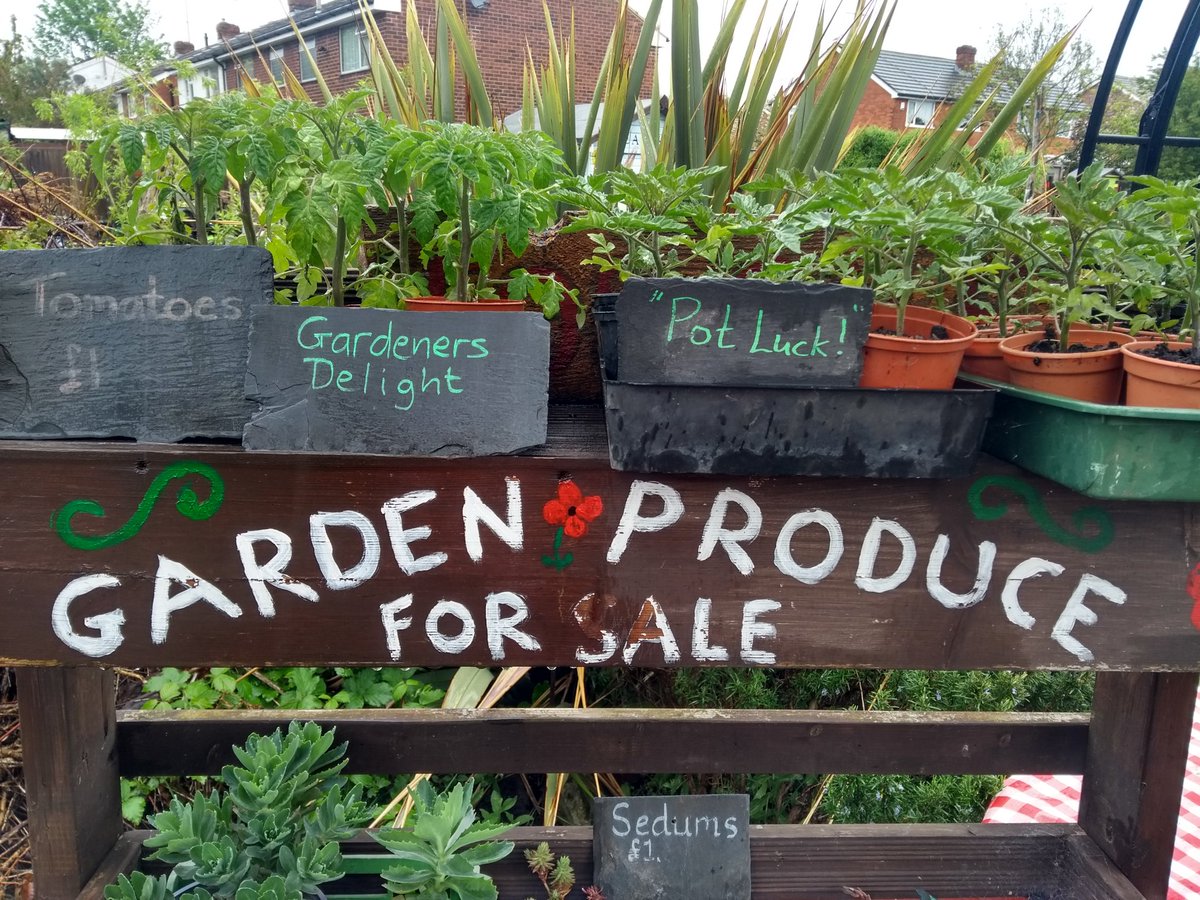 Tomatoes
£1
Gardeners
Delight
"Pot Luck!"
GARDEN PRODUCE
FOR SALE
Sedums
£1.